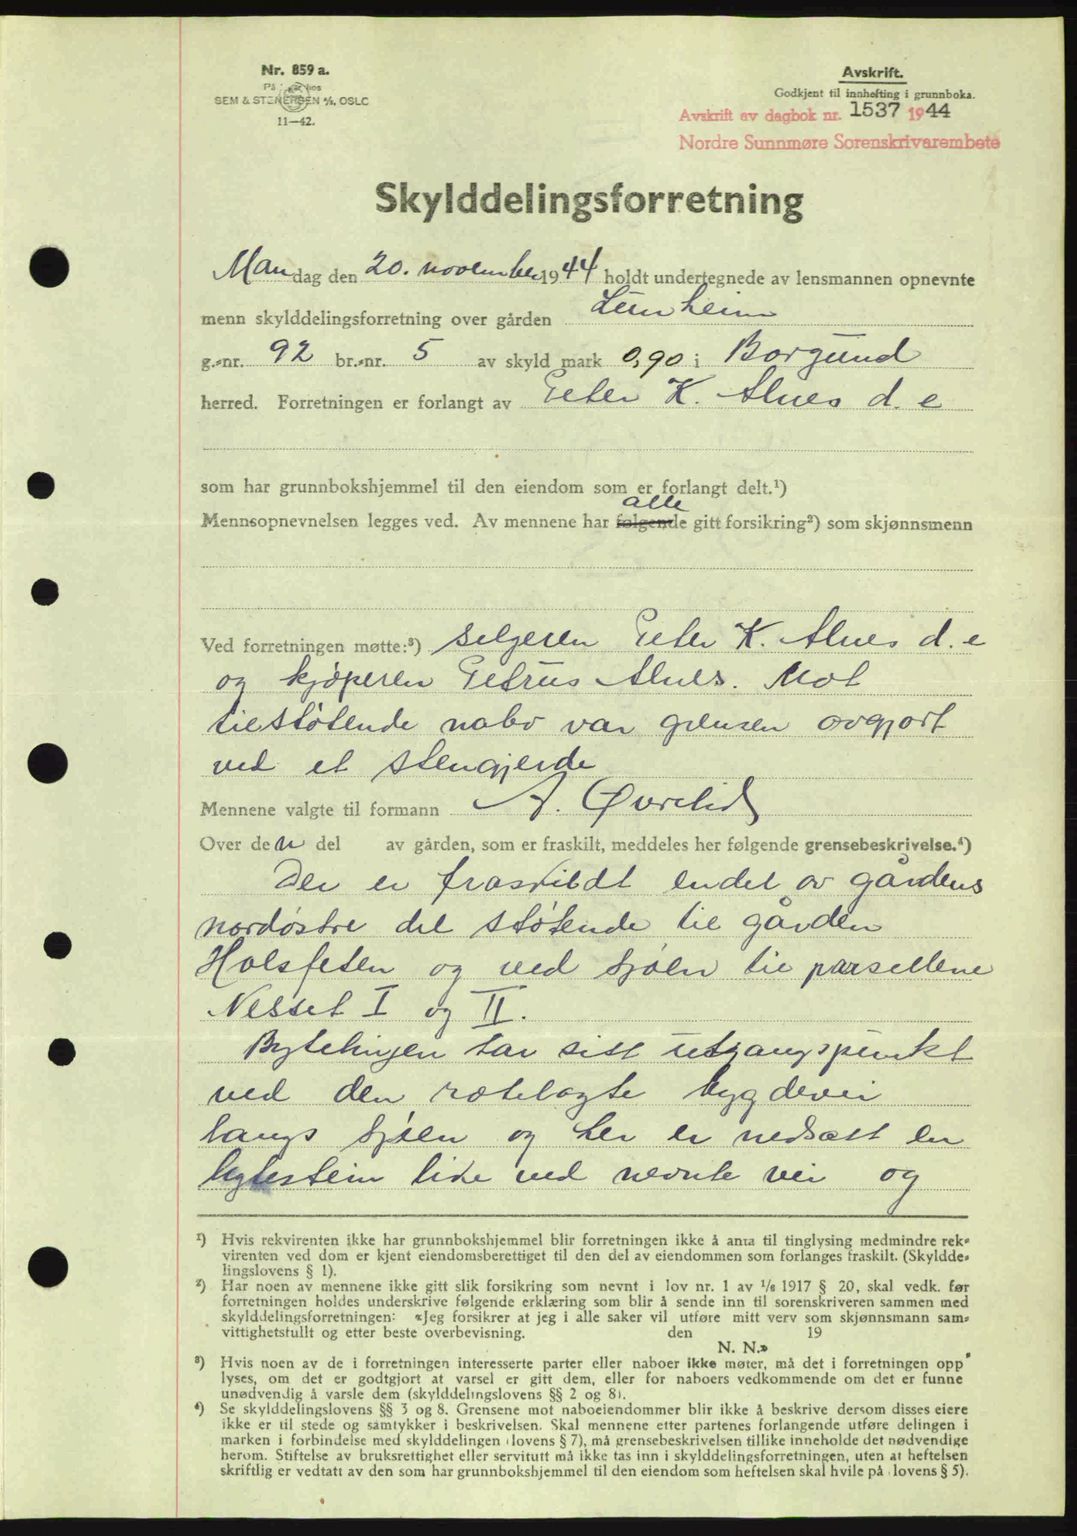 Nr. 859 a.
På lager hos
SEM & STENERSEN A/S, OSLO
11—42.
Avskrift.
Godkjent til innhefting i grunnboka.
Avskrift av dagbok nr. 1537 1944
Nordre Sunnmøre Sorenskrivarembete
Skylddelingsforretning
Mandag den 20. november 1944 holdt undertegnede av lensmannen opnevnte
menn skylddelingsforretning over gården
g.-nr. 92 br.-nr. 5 av skyld mark 0,90 i Borgund
herred. Forretningen er forlangt av Peter K. Alnes d. e
som har grunnbokshjemmel til den eiendom som er forlangt delt.¹)
alle
Mennsopnevnelsen legges ved. Av mennene har følgende gitt forsikring²) som skjønnsmenn
Ved forretningen møtte:³) selgeren Peter K. Alnes d. e
og kjøperen Petrus Alnes. Mot
tilstøtende nabo var grensen avgjort
ved et stengjerde
Mennene valgte til formann A. Øvrelid
Over den del av gården, som er fraskilt, meddeles her følgende grensebeskrivelse.⁴)
Der er fraskildt endel av gårdens
nordøstre del støtende til gården
Holsfeten og ved sjøen til parsellene
Nesset I og II.
Bytelinjen tar sitt utgangspunkt
ved den rodelagte bygdevei
langs sjøen og her er nedsatt en
bytestein like ved nevnte vei og
¹) Hvis rekvirenten ikke har grunnbokshjemmel blir forretningen ikke å anta til tinglysing medmindre rek-
virenten ved dom er kjent eiendomsberettiget til den del av eiendommen som forlanges fraskilt. (Skyldde-
lingslovens § 1).
²) Har noen av mennene ikke gitt slik forsikring som nevnt i lov nr. 1 av 1/6 1917 § 20, skal vedk. før
forretningen holdes underskrive følgende erklæring som blir å sende inn til sorenskriveren sammen med
skylddelingsforretningen: «Jeg forsikrer at jeg i alle saker vil utføre mitt verv som skjønnsmann sam-
vittighetsfullt og etter beste overbevisning. den 19
N. N.»
³) Hvis noen av de i forretningen interesserte parter eller naboer ikke møter, må det i forretningen opp
lyses, om det er godtgjort at varsel er gitt dem, eller for naboers vedkommende om det er funne
unødvendig å varsle dem (skylddelingslovens §§ 2 og 8).
⁴) Se skylddelingslovens §§ 3 og 8. Grensene mot naboeiendommer blir ikke å beskrive dersom disses eiere
ikke er til stede og samtykker i beskrivelsen. Skal mennene etter partenes forlangende utføre delingen i
marken i forbindelse med skylddelingen (lovens § 7), må grensebeskrivelsen tillike inneholde det nødvendige
herom. Stiftelse av bruksrettighet eller servitutt må ikke tas inn i skylddelingsforretningen, uten at heftelsen
skriftlig er vedtatt av den som har grunnbokshjemmel til den eiendom som heftelsen skal hvile på (lovens § 5).